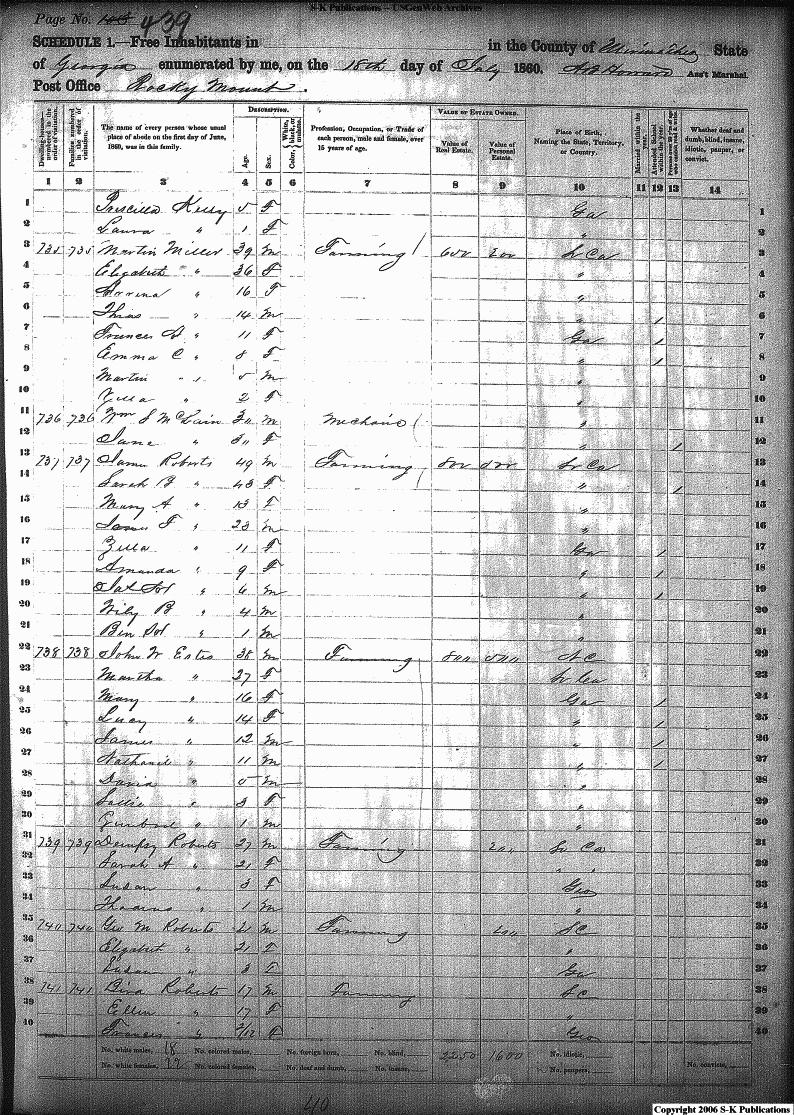 S-K Publications – USGenWeb Archives
Page No. 439
SCHEDULE 1.—Free Inhabitants in in the County of State
of Georgia enumerated by me, on the 18th day of July 1860. Howard Ass't Marshal.
Post Office Rocky Mount.
DESCRIPTION. VALUE OF ESTATE OWNED.
Dwelling-houses—numbered in the order of visitation. Families numbered in the order of visitation. The name of every person whose usual place of abode on the first day of June, 1860, was in this family. Age. Sex. Color, White, black, or mulatto. Profession, Occupation, or Trade of each person, male and female, over 15 years of age. Value of Real Estate. Value of Personal Estate. Place of Birth, Naming the State, Territory, or Country. Married within the year. Attended School within the year. Whether deaf and dumb, blind, insane, idiotic, pauper, or convict.
1 2 3 4 5 6 7 8 9 10 11 12 13 14
1 Priscilla Kelly 5 F Ga 1
2 Laura " 1 F " 2
3 735 735 Martin Miller 39 M Farming 600 200 So Ca 3
4 Elizabeth " 36 F " 4
5 " 16 F " 5
6 Thos " 14 M " 1 6
7 Frances " 11 F Ga 1 7
8 Emma C " 8 F " 1 8
9 Martin " 5 M " 9
10 " 2 F " 10
11 736 736 Wm S McLain 30 M Mechanic " 11
12 Jane " 30 F " 1 12
13 737 737 James Roberts 49 M Farming 800 400 So Ca 13
14 Sarah " 43 F " 1 14
15 Mary A " 13 F " 15
16 James F " 23 M " 16
17 Zilla " 11 F Ga 1 17
18 Amanda " 9 F " 1 18
19 " 6 M " 1 19
20 Wily B " 4 M " 20
21 Ben " 1 M " 21
22 738 738 John W Estes 38 M Farming 800 500 S C 22
23 Martha " 37 F So Ca 23
24 Mary " 16 F Ga 1 24
25 Lucy " 14 F " 1 25
26 James " 12 M " 1 26
27 Nathaniel " 11 M " 1 27
28 David " 5 M " 28
29 Sallie " 3 F " 29
30 " 1 M " 30
31 739 739 Dempsy Roberts 27 M Farming 200 So Ca 31
32 Sarah A " 21 F " " 32
33 Susan " 3 F Geo 33
34 " 1 M " 34
35 740 740 Geo M Roberts 21 M Farming S C 35
36 Elizabeth " 21 F " 36
37 Susan " 3 F Ga 37
38 741 741 Roberts 17 M Farming S C 38
39 Ellen " 17 F " 39
40 Frances " 2/12 F Geo 40
No. white males, 18 No. colored males, No. foreign born, No. blind, 2250 1600 No. idiotic,
No. white females, 22 No. colored females, No. deaf and dumb, No. insane, No. paupers, No. convicts,
40
Copyright 2006 S-K Publications